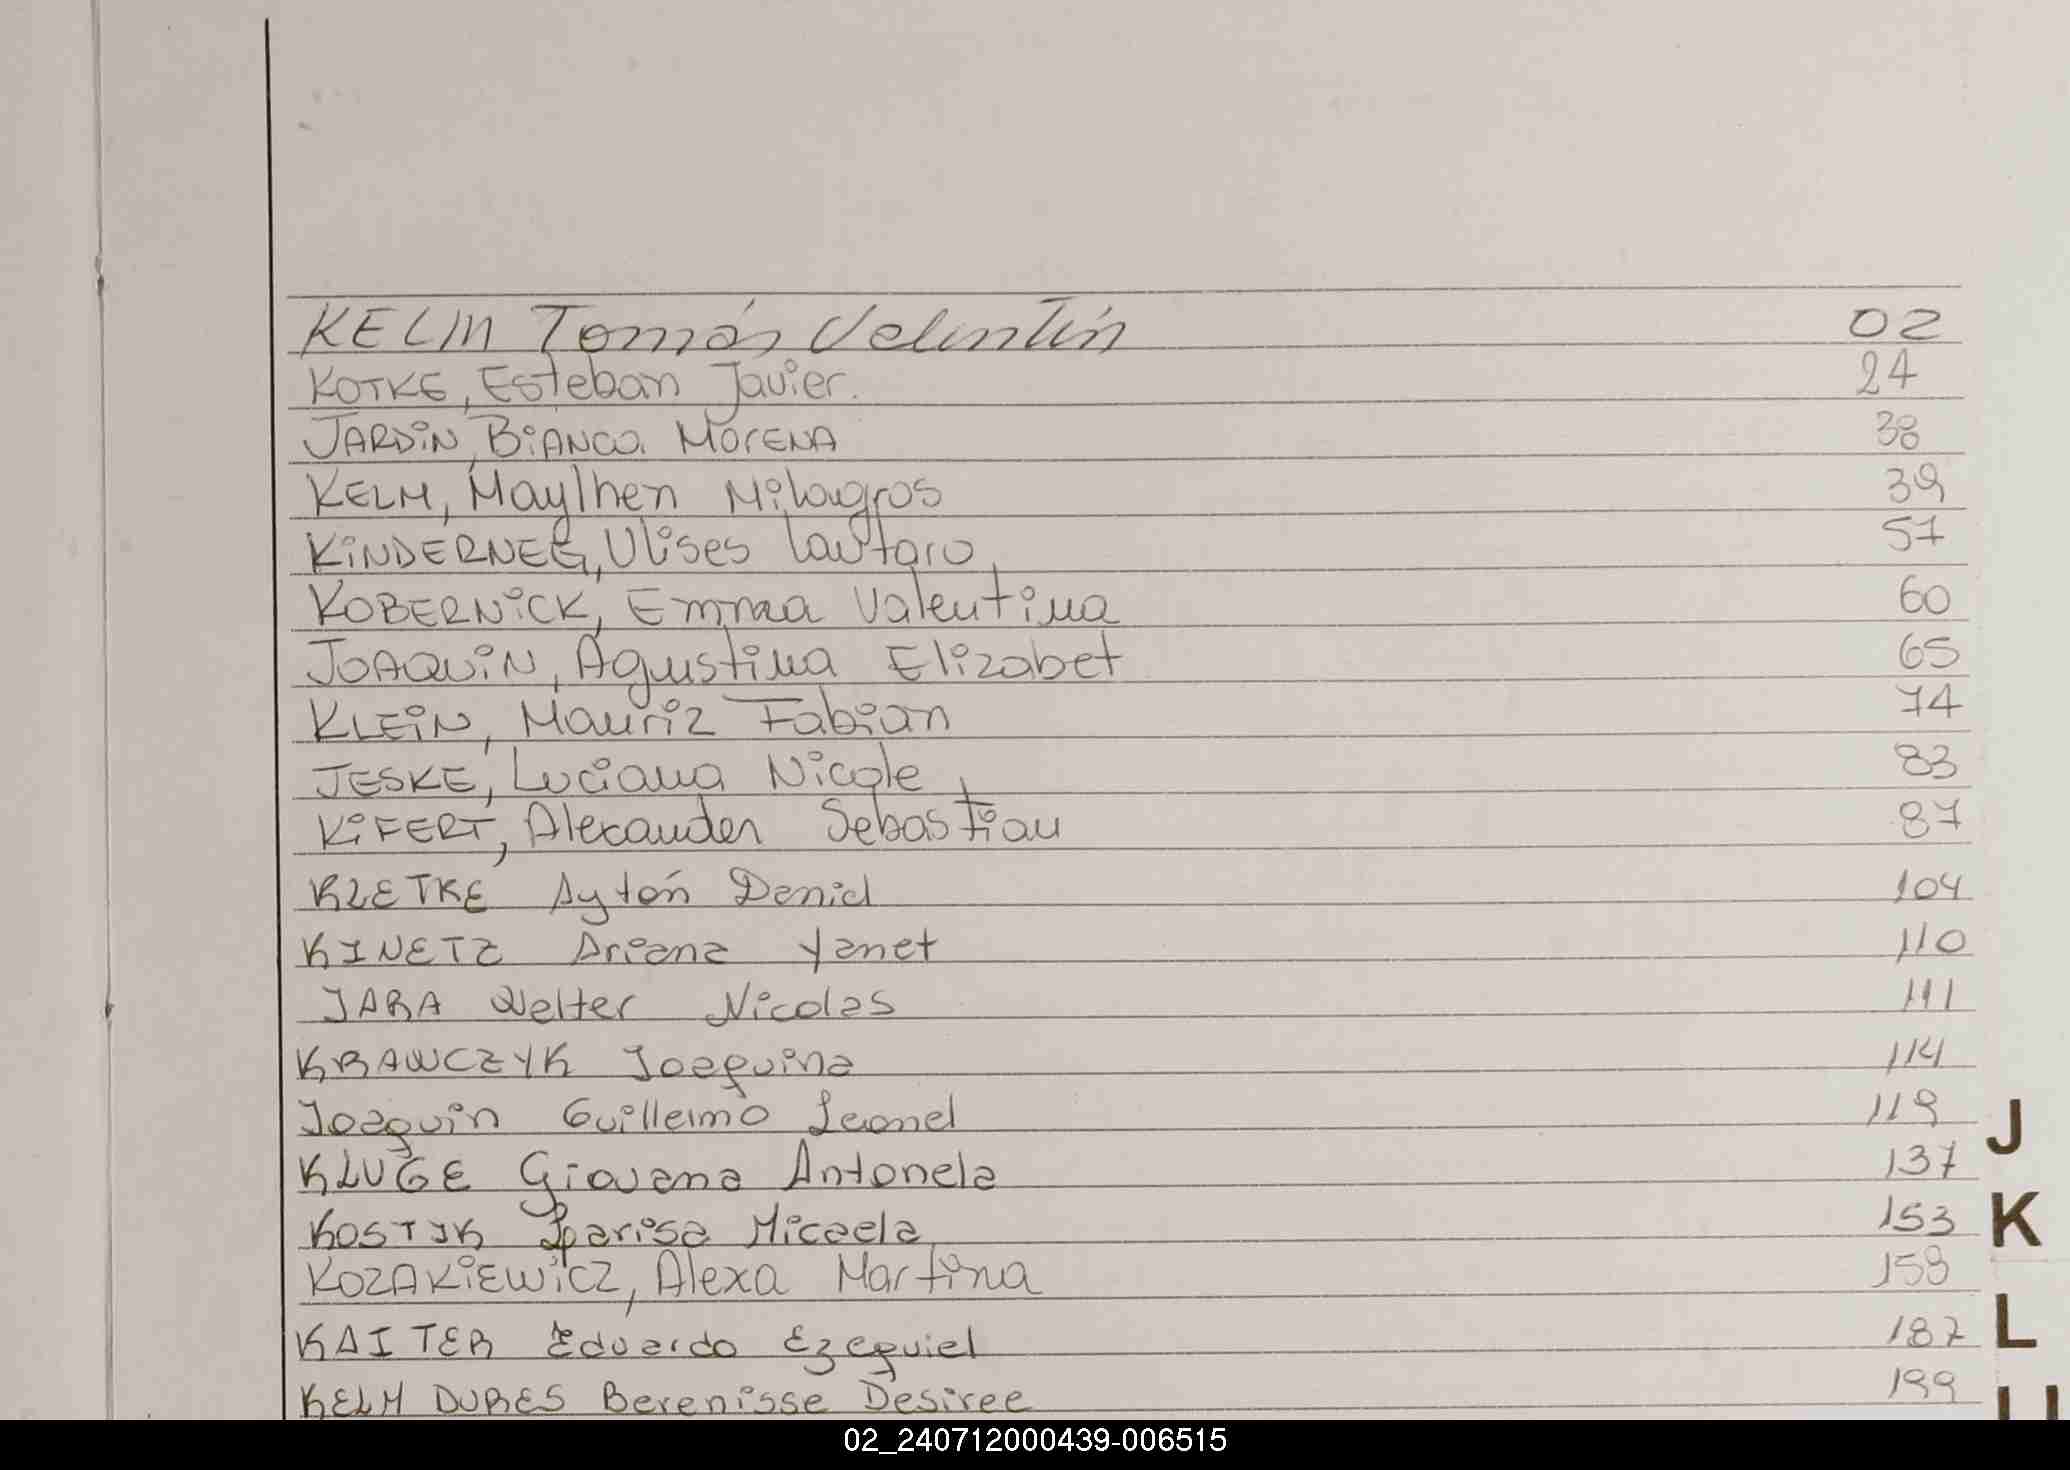 KELM Tomás Valentín 02
KOTKE, Esteban Javier. 24
JARDiN, BiANCA MORENA 38
KELM, Maylhen Milagros 39
KiNDERNEG, Ulises Lautaro 57
KOBERNiCK, Emma Valentina 60
JOAQUiN, Agustina Elizabet 65
KLEiN, Mauriz Fabian 74
JESKE, Luciana Nicole 83
KiFERT, Alexander Sebastian 87
KLETKE Aytón Daniel 104
KINETZ Ariana Yanet 110
JARA Walter Nicolas 111
KRAWCZYK Joaquina 114
Joaquin Guillermo Leonel 119
KLUGE Giovana Antonela 137
KOSTIK Larisa Micaela 153
KOZAKiEWiCZ, Alexa Martina 159
KAITER Eduardo Ezequiel 187
KELM DUBES Berenisse Desiree 199
J
K
L
02_240712000439-006515